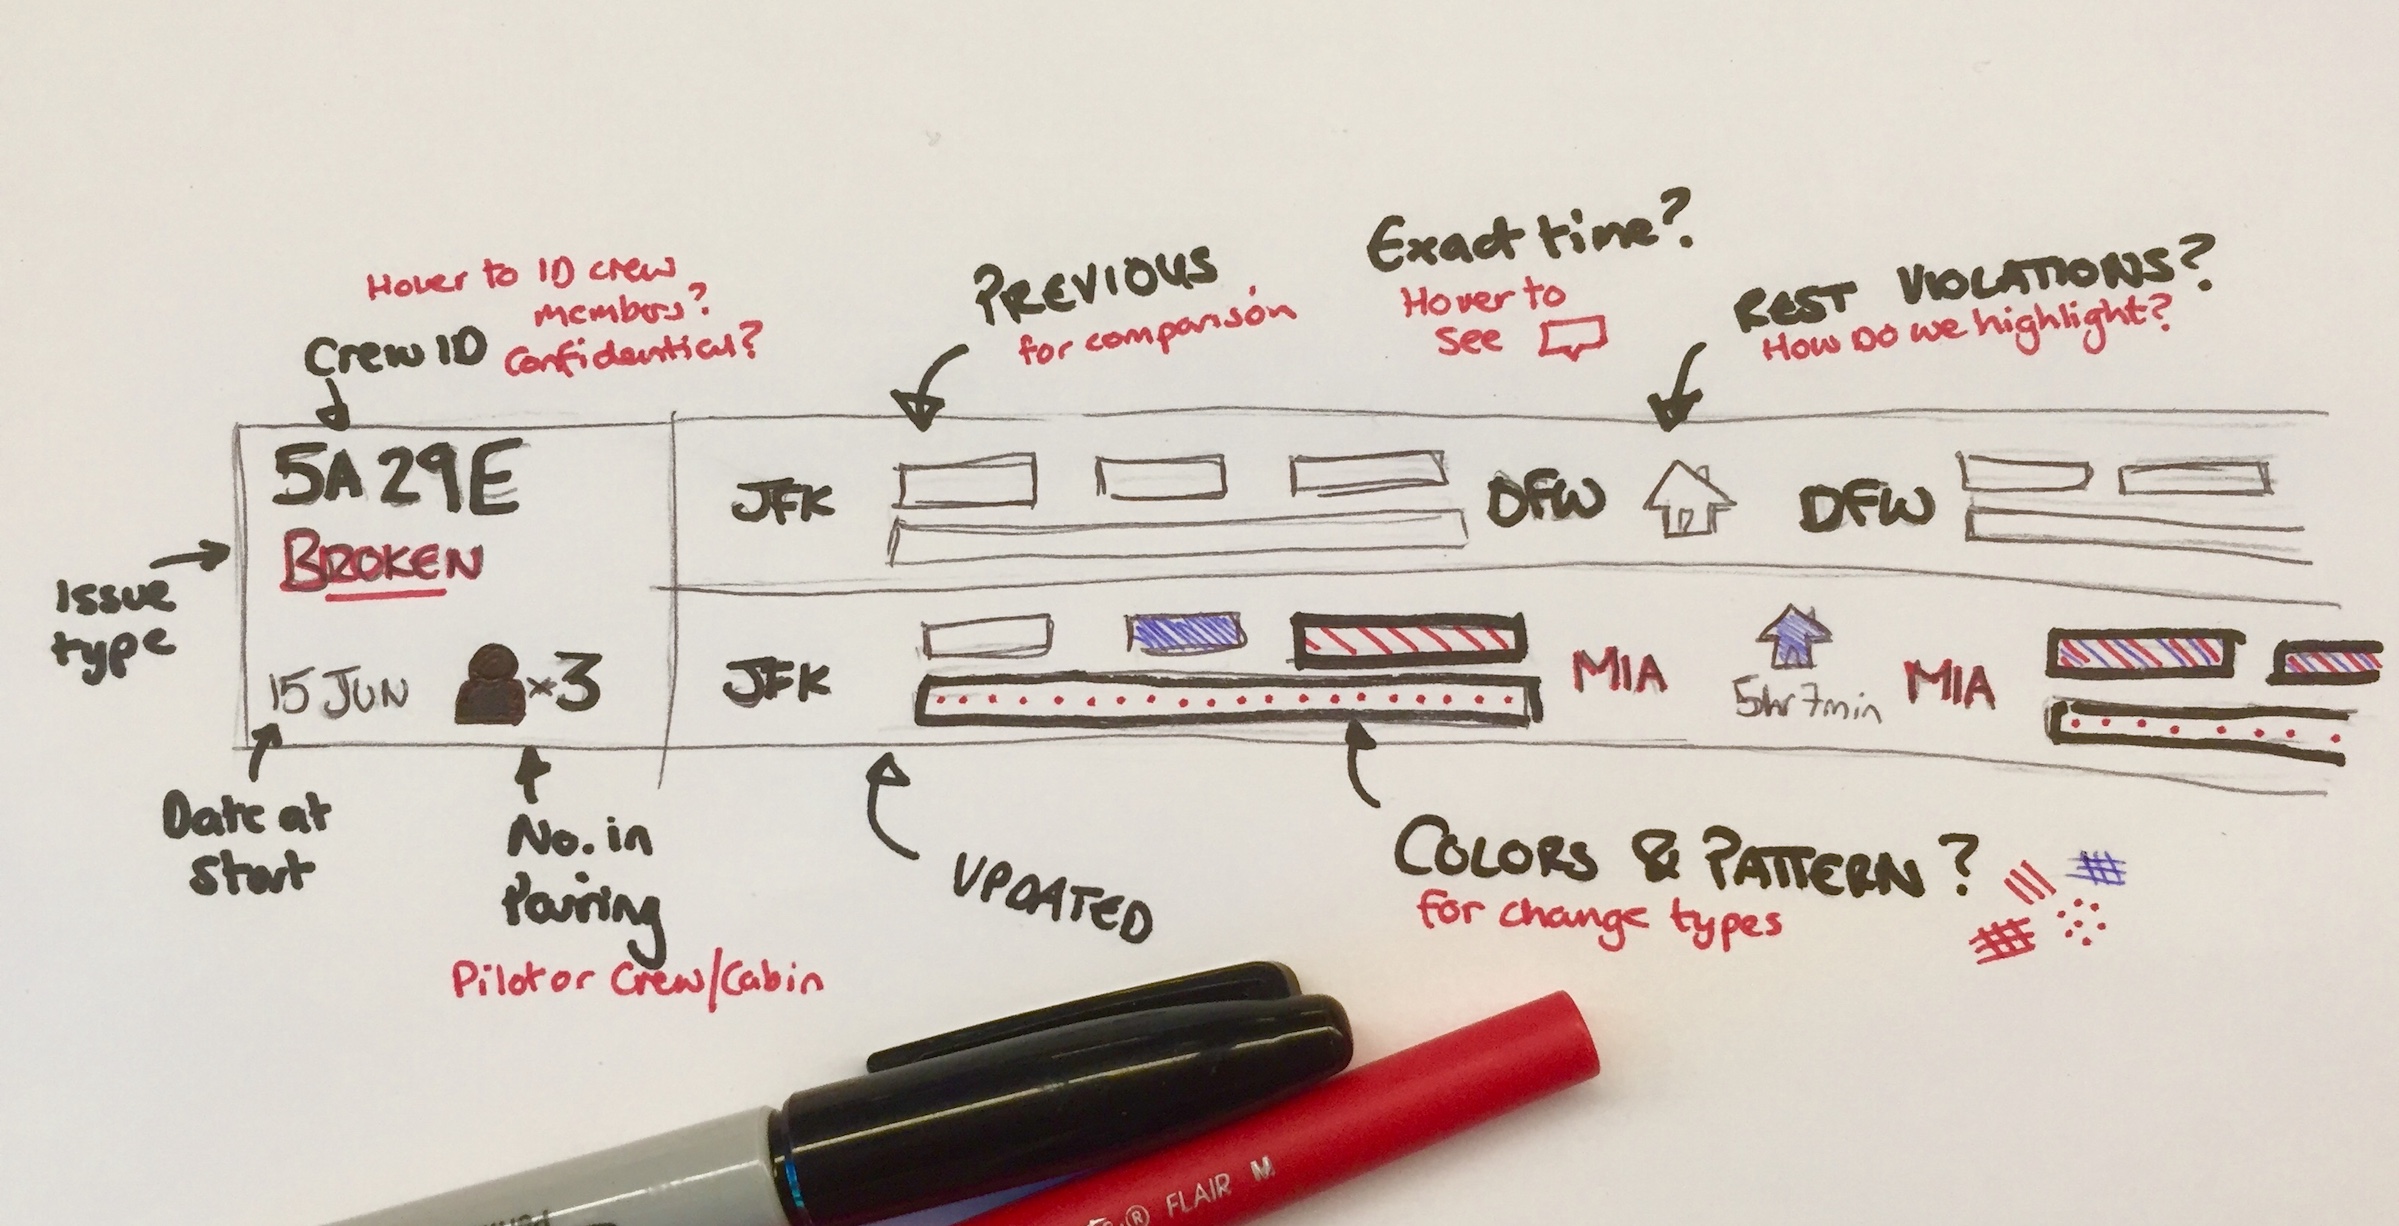 Hover to ID crew
members?
Confidential?
Crew ID
PREVIOUS
for comparison
Exact time?
Hover to
see
REST VIOLATIONS?
How Do we highlight?
5A29E
BROKEN
15 JUN
×3
Issue
type
JFK
DFW
DFW
JFK
MIA
5hr 7min
MIA
Date at
start
No. in
Pairing
Pilot or Crew/Cabin
UPDATED
COLORS & PATTERN?
for change types
® FLAIR M